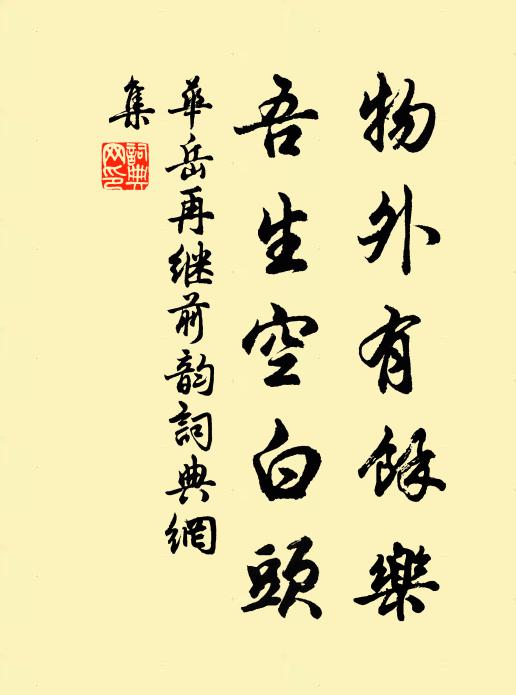 物外有餘樂
吾生空白頭
華岳再继前韵詞典網
集
詞典網印